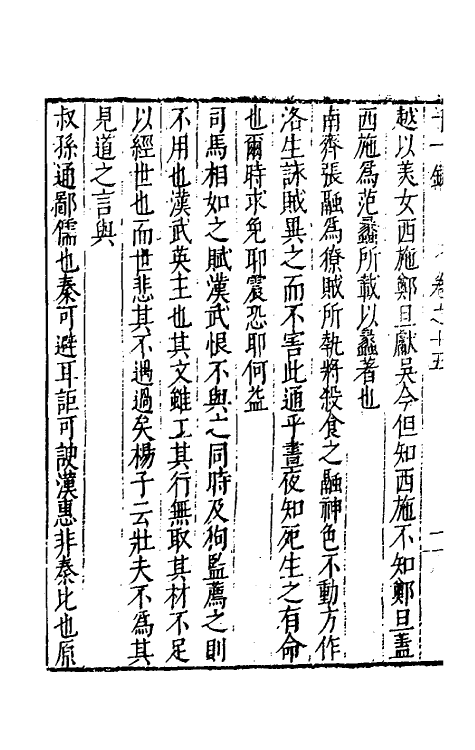 十一錄 卷之十五
越以美女西施鄭旦獻吳今但知西施不知鄭旦蓋
西施爲范蠡所載以蠡著也
南齊張融爲獠賊所執將殺食之融神色不動方作
洛生詠賊異之而不害此通乎晝夜知死生之有命
也爾時求免耶震恐耶何益
司馬相如之賦漢武恨不與之同時及狗監薦之則
不用也漢武英主也其文雖工其行無取其材不足
以經世也而世悲其不遇過矣楊子云壯夫不爲其
見道之言與
叔孫通鄙儒也秦可避耳詎可諛漢惠非秦比也原